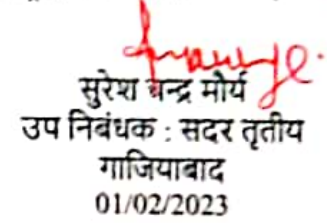 सुरेश चन्द्र मौर्य
उप निबंधक : सदर तृतीय
गाजियाबाद
01/02/2023